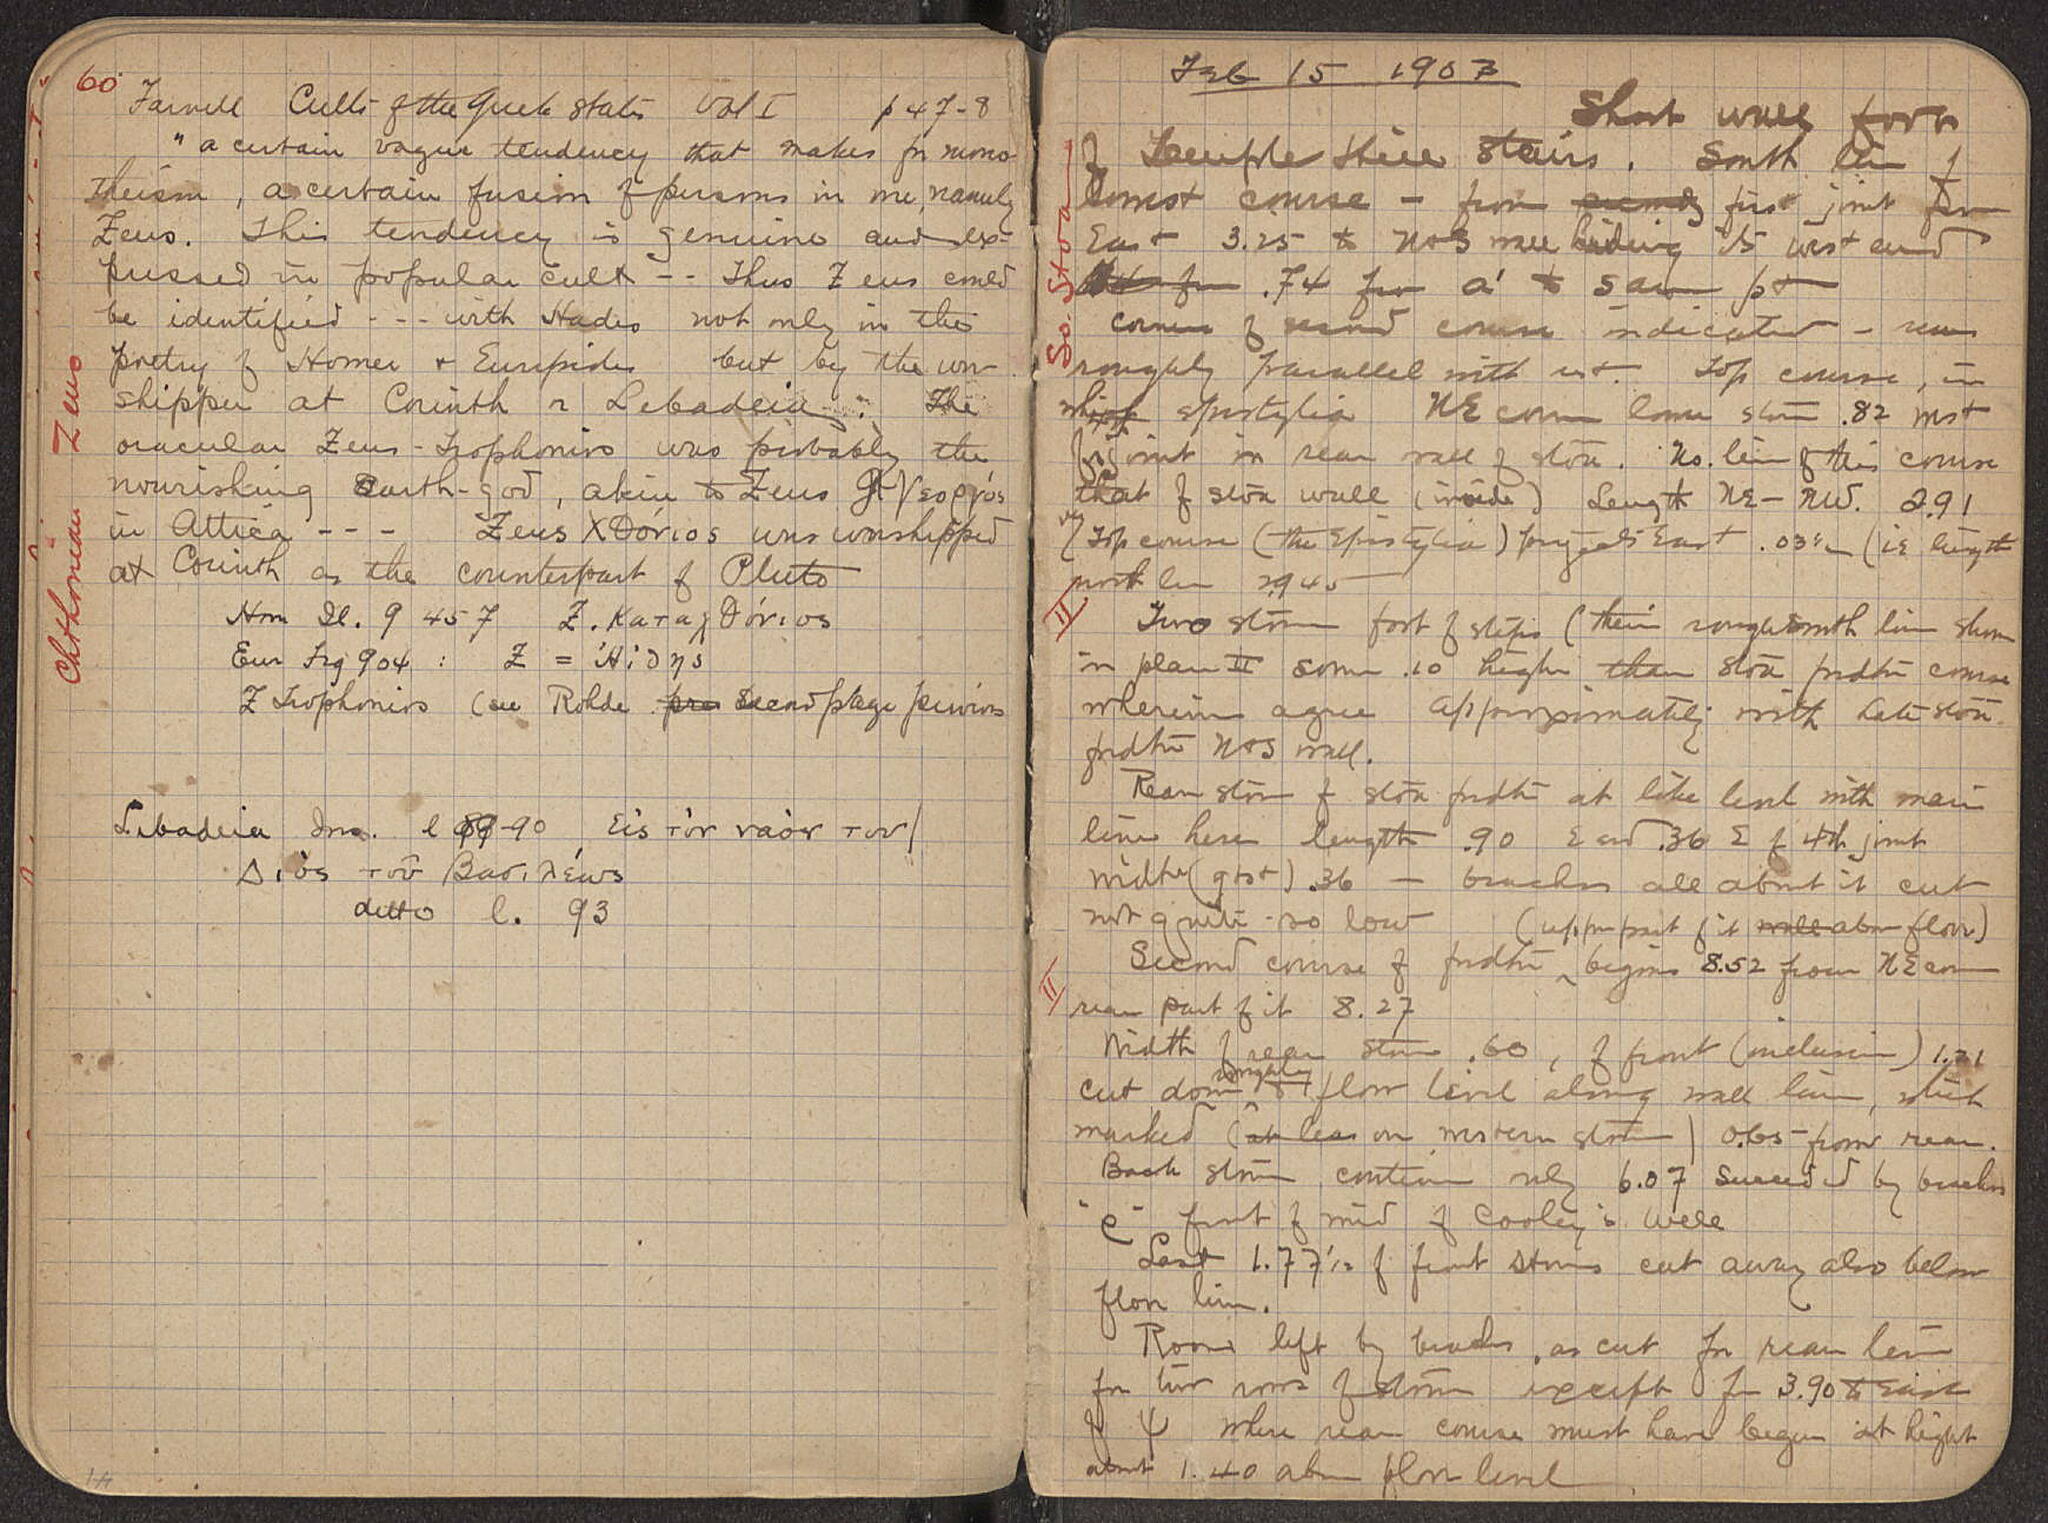 60
Farnell Cults of the Greek States Vol I p 47-8
"a certain vague tendency that makes for mono-
theism, a certain fusion of persons in one, namely
Zeus. This tendency is genuine and ex-
pressed in popular cult -- Thus Zeus could
be identified --- with Hades not only in the
poetry of Homer & Euripides but by the wor-
shipper at Corinth & Lebadeia: The
oracular Zeus-Trophonios was probably the
nourishing Earth-god, akin to Zeus Γεωργός
in Attica --- Zeus Χθόνιος was worshipped
at Corinth as the counterpart of Pluto
Hom Il. 9 457 Z. καταχθόνιος
Eur Frg 904 : Z = Ἅιδης
Z Trophonios (see Rohde second page previous
Chthonian Zeus
Lebadeia Ins. l 89-90 Εἰς τὸν ναὸν τοῦ
Διὸς τοῦ Βασιλέως
ditto l. 93
Feb 15 1903
Short wall foot
of Temple Hill stairs. South line of
lowest course - from first joint from
East 3.25 to N+S wall hiding its west end
.74 from a' to same pt
corner of second course indicated - runs
roughly parallel with it. Top course, in
which epistylia NE corner lower stone .82 west
joint in rear wall of stoa. No. line of this course
that of stoa wall (inside) Length NE-NW. 2.91
Top course (the Epistylia) projects East .035 (ie length
north line 2.945
So. Stoa
II
Two stones foot of steps (their rough south line shown
in plan II some .10 higher than stoa fndtn course
wherein agree approximately with late stoa
fndtn N+S wall.
Rear stone of stoa fndtn at like level with main
line here length .90 E end .36 E of 4th joint
width (gtst) .36 - beaches all about it cut
not quite so low (upper part of it above floor)
II
Second course of fndtn begins 8.52 from NE corner
rear part of it 8.27
Width of rear stone .60, of front (inclusion) 1.21
cut down roughly to floor level along wall line, which
marked (at least on western stone) 0.65 from rear.
Back stones continue only 6.07 succeeded by beaches
"e" front of mid of Cooley's well
Last 1.77½ of front stones cut away also below
floor line.
Room left by beaches, as cut for rear line
for two rows of stone except for 3.90 to East
of ψ where rear course must have begun at height
about 1.40 above floor level